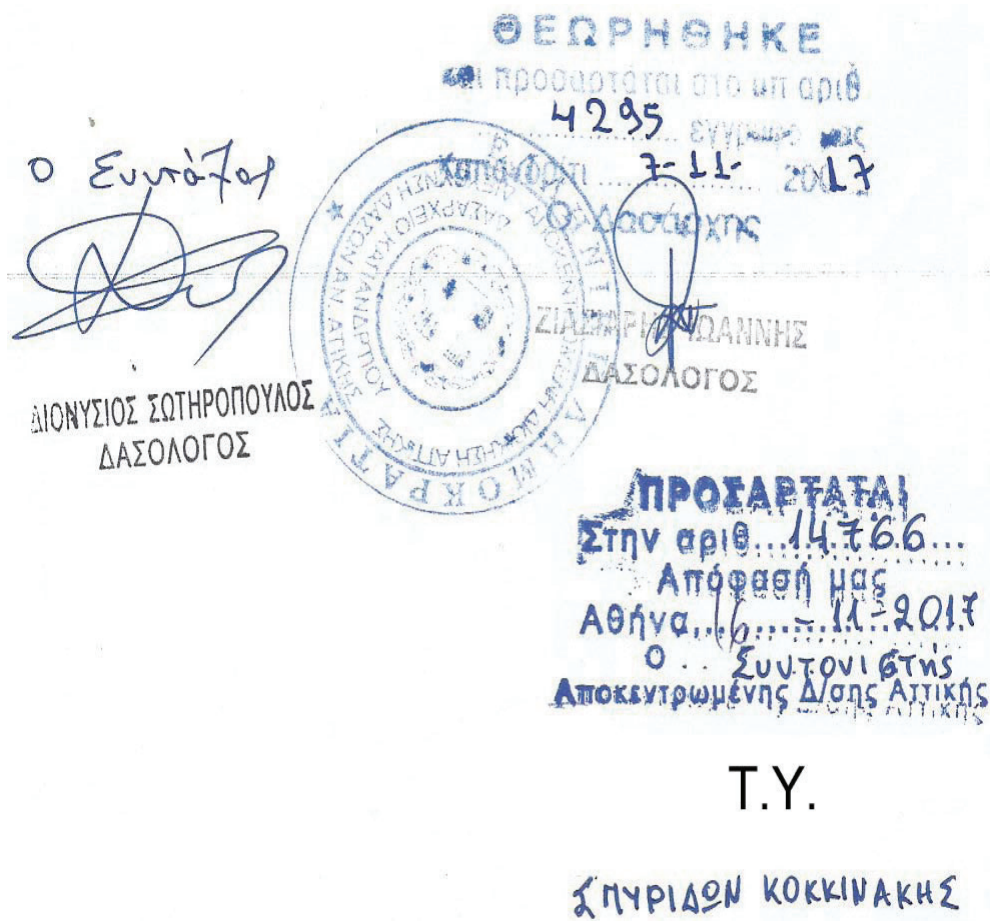 ΘΕΩΡΗΘΗΚΕ
και προσαρτάται στο υπ αριθ
4295 έγγραφο μας
Καπανδρίτι 7-11- 2017
Ο Δασάρχης
ΖΙΑΖΙΑΡΗΣ ΙΩΑΝΝΗΣ
ΔΑΣΟΛΟΓΟΣ
Ο Συντάξας
ΔΙΟΝΥΣΙΟΣ ΣΩΤΗΡΟΠΟΥΛΟΣ
ΔΑΣΟΛΟΓΟΣ
ΔΗΜΟΚΡΑΤΙ
ΑΠΟΚΕΝΤΡΩΜΕΝΗ ΔΙΟΙΚΗΣΗ ΑΤΤΙΚΗΣ
ΔΑΣΑΡΧΕΙΟ ΚΑΠΑΝΔΡΙΤΙΟΥ
ΠΡΟΣΑΡΤΑΤΑΙ
Στην αριθ...14766...
Απόφασή μας
Αθήνα...16...-11-2017
Ο.. Συντονιστής
Αποκεντρωμένης Δ/σης Αττικής
Τ.Υ.
ΣΠΥΡΙΔΩΝ ΚΟΚΚΙΝΑΚΗΣ